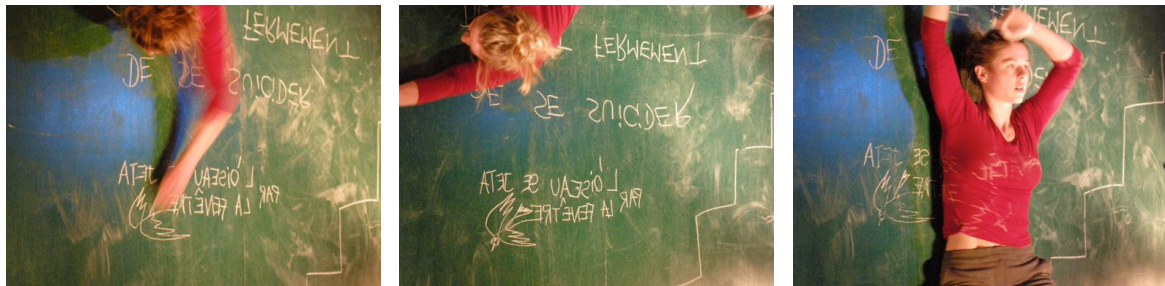 FERMEMENT
DE SE SUICIDER
L'OISEAU SE JETA
PAR LA FENÊTRE
FERMEMENT
DE SE SUICIDER
L'OISEAU SE JETA
PAR LA FENÊTRE
DE SE
SE JETA